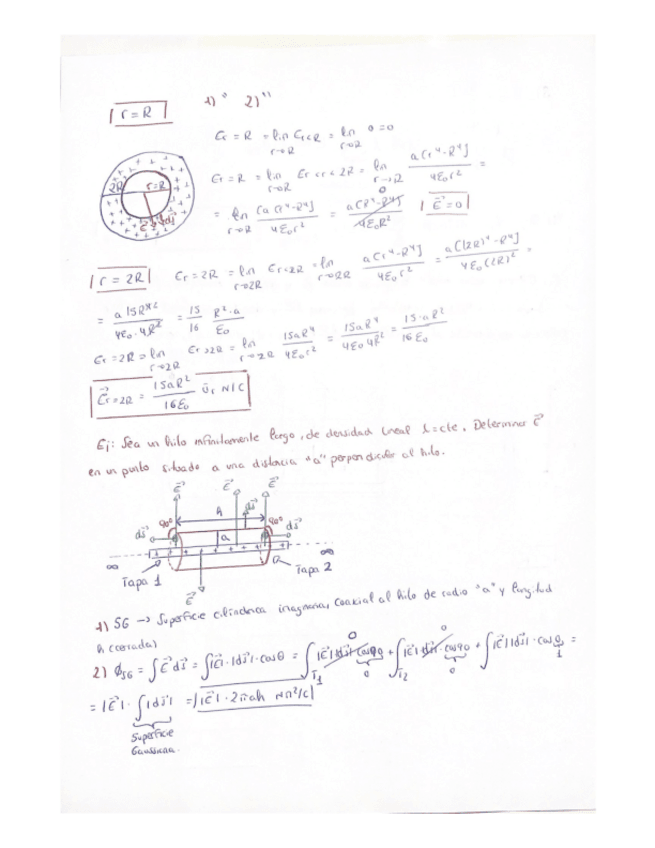 r = R
1) " 2) "
Er = R = lim r→R Er<R = lim r→R 0 = 0
Er = R = lim r→R E R<r<2R = lim r→R a[r⁴-R⁴] / 4ε₀r² =
2R r=R
= lim r→R [a(r⁴-R⁴] / 4ε₀r² = a(R⁴-R⁴) 0 / 4ε₀R² | E⃗ = 0 |
r = 2R Er = 2R = lim r→2R Er<2R = lim r→2R a[r⁴-R⁴] / 4ε₀r² = a[(2R)⁴-R⁴] / 4ε₀(2R)² =
= a 15R⁴ / 4ε₀·4R² = 15/16 R²·a / ε₀
Er = 2R = lim r→2R Er>2R = lim r→2R 15aR⁴ / 4ε₀r² = 15aR⁴ / 4ε₀4R² = 15·aR² / 16ε₀
E⃗r=2R = 15aR² / 16ε₀ ûr N/C
Ej: Sea un hilo infinitamente largo, de densidad lineal λ=cte, Determinar E⃗
en un punto situado a una distancia "a" perpendicular al hilo.
E⃗ E⃗ E⃗
h ds⃗
ds⃗ 90° a 90° ds⃗
∞ + + + + + + ∞
Tapa 1 Tapa 2
E⃗
1) SG → Superficie cilíndrica imaginaria, coaxial al hilo de radio "a" y longitud
h (cerrada)
2) ϕSG = ∫E⃗ ds⃗ = ∫|E⃗|·|ds⃗|·cosθ = ∫T1 |E⃗||ds⃗| cos90 0 + ∫T2 |E⃗||ds⃗| cos90 0 + ∫|E⃗||ds⃗|·cos0 1 =
= |E⃗|·∫|ds⃗| = |E⃗|·2πah Nm²/C
Superficie
Gaussiana.